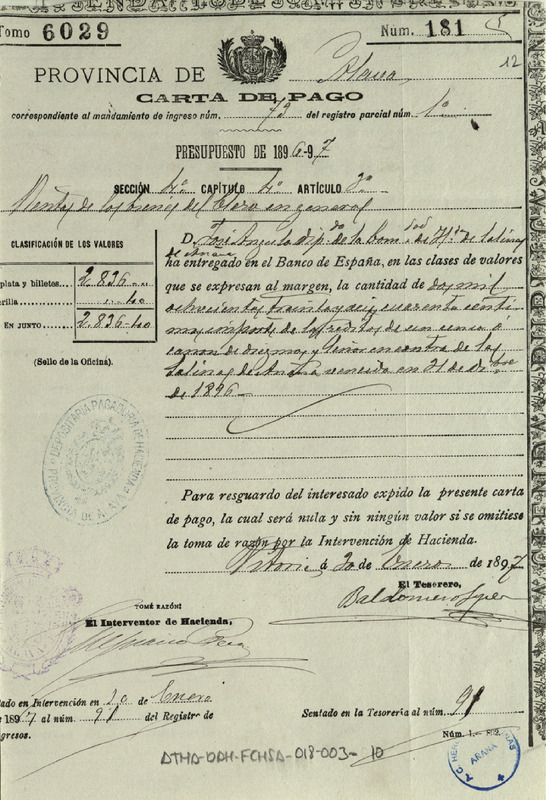 Tomo 6029 Núm. 181
12
PROVINCIA DE Alava
CARTA DE PAGO
correspondiente al mandamiento de ingreso núm. 79 del registro parcial núm. 1º
PRESUPUESTO DE 1896-97
SECCIÓN 4ª CAPÍTULO 4º ARTÍCULO 2º
Rentas de los bienes del Clero en general
CLASIFICACIÓN DE LOS VALORES
plata y billetes: 2.836
erilla 40
EN JUNTO 2.836-40
(Sello de la Oficina).
D. José Angulo dip.do de la Com.dad de H.os de Salinas
de Anana
ha entregado en el Banco de España, en las clases de valores
que se expresan al margen, la cantidad de dos mil
ochocientas treinta y seis cuarenta cénti
mos importe de los réditos de un censo o
canon de diezmos y en contra de las
Salinas de Anana vencido en 31 de Dbre
de 1896
DEPOSITARIA PAGADURIA DE HACIENDA
PROVINCIA DE ALAVA
Para resguardo del interesado expido la presente carta
de pago, la cual será nula y sin ningún valor si se omitiese
la toma de razón por la Intervención de Hacienda.
Vitoria á 20 de Enero de 1897
El Tesorero,
Baldomero
TOMÉ RAZÓN:
El Interventor de Hacienda,
tado en Intervención en 20 de Enero
de 1897 al núm. 91 del Registro de
ngresos.
Sentado en la Tesorería al núm. 91
Núm. 1.-892.
ATHA-DAH-FCHSA-018-003-10
ARANA